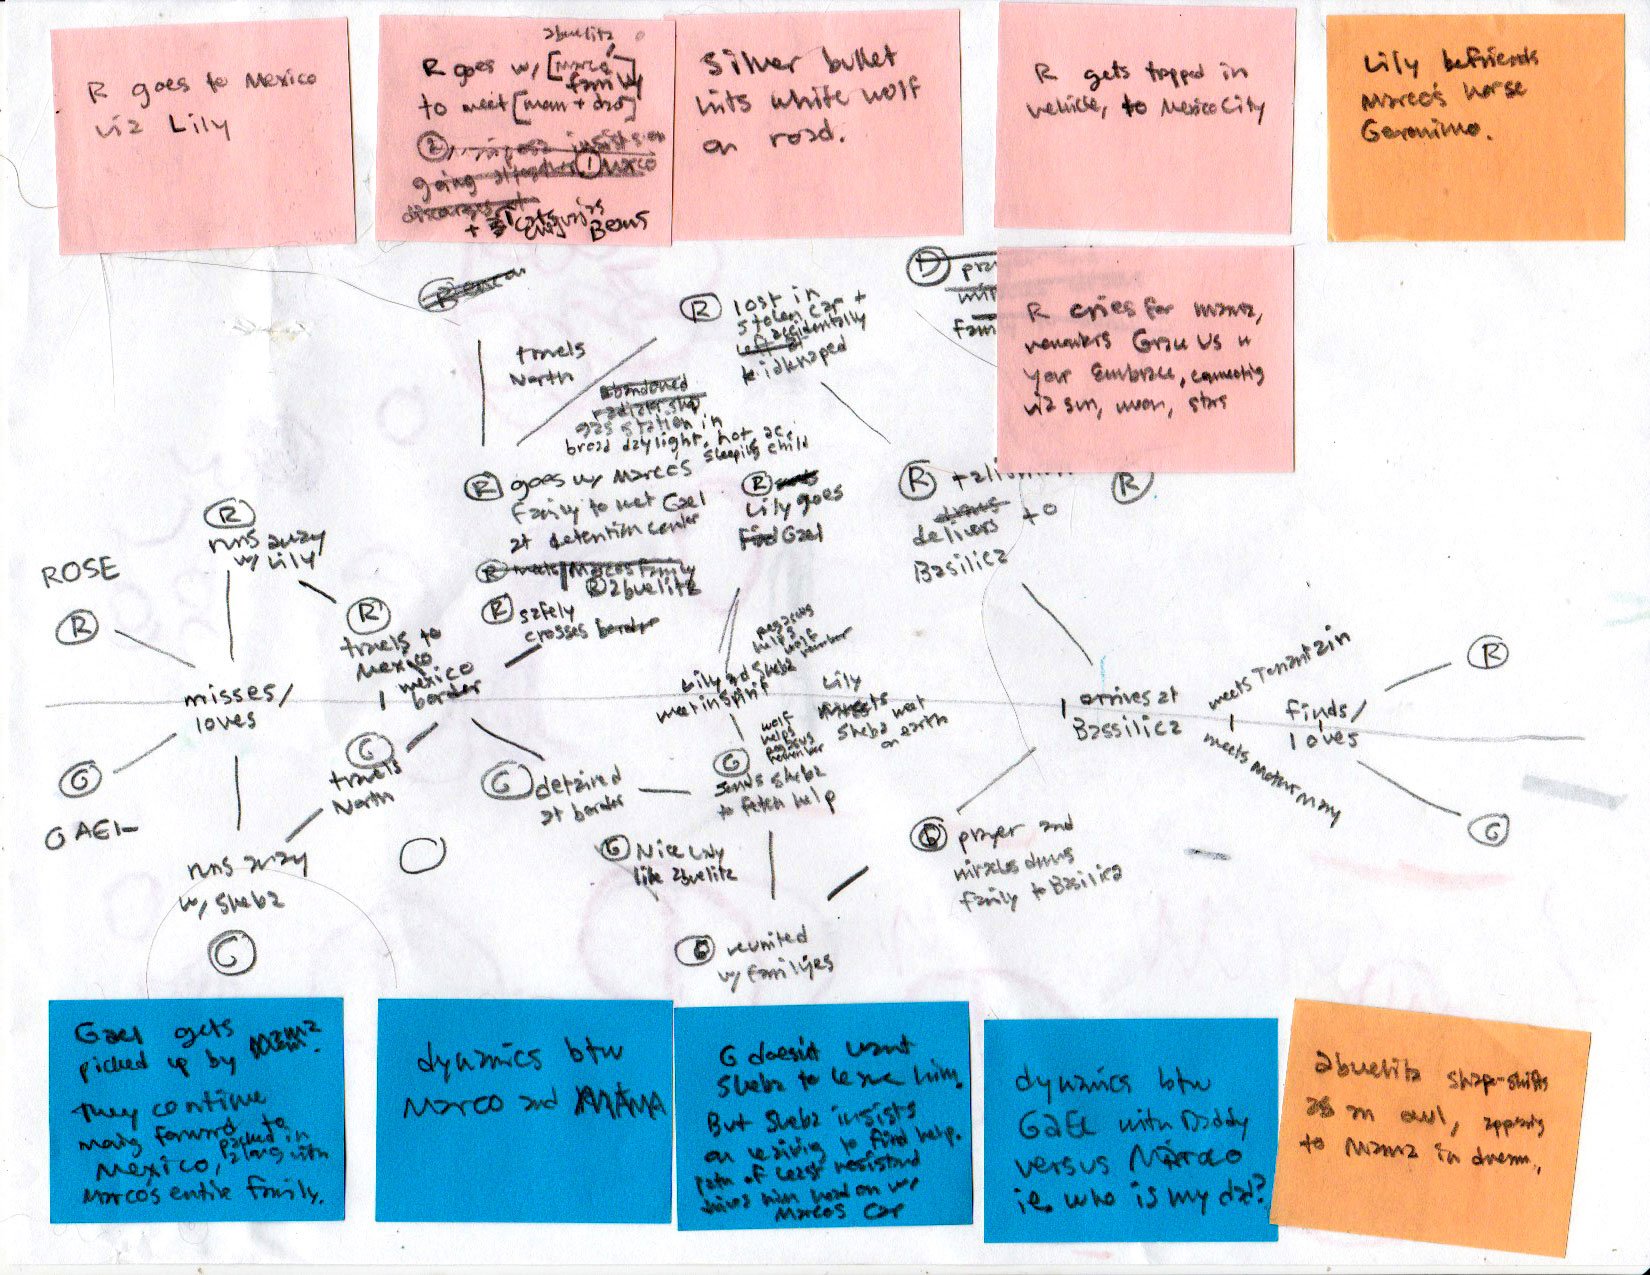 R goes to Mexico
via Lily
abuelita
R goes w/ [Marco
family]
to meet [mom + dad]
② insists on
going altogether ① Marco
discarges
+ Beans
Silver bullet
hits white wolf
on road.
R gets trapped in
vehicle, to Mexico City
Lily befriends
Marco's horse
Geronimo.
R cries for mama,
remembers Grau Us in
your Embrace, connecting
via sun, moon, stars
R lost in
stolen car +
accidentally
left at
kidknaped
D pra
mir
fam
travels
North
abandoned
radiator shop
gas station in
broad daylight, hot, ac.
sleeping child
R goes w/ Marcos
family to met Gael
at detention center
R meets Marcos family
R abuelita
R safely
crosses border
R
Lily goes
find Gael
R
delivers to
Basilica
R
R
runs away
w/ Lily
ROSE
R
R
travels to
Mexico
mexico
border
misses/
loves
G
GAEL
G
travels
North
runs away
w/ Sheba
G
G detained
at border
pegasus
helps
wolf
Lily and Sheba
meet in spirit
Lily
meets
Sheba meet
on earth
wolf
helps
pegasus
G
sends Sheba
to fetch help
G Nice Lady
like abuelita
G reunited
w/ families
G prayer and
miracles draws
family to Basilica
arrives at
Bassilica
meets Tonantzin
meets Mother Mary
finds/
loves
R
G
Gael gets
picked up by Mama.
they continue
moving forward to
Mexico, packed in
along with
Marcos entire family.
dynamics btw
Marco and MAMA
G doesn't want
Sheba to leave him.
But Sheba insists
on leaving to find help.
path of least resistand
drives him head on w/
Marcos Car
dynamics btw
GAEL with Daddy
versus Marco
ie. who is my dad?
abuelita shape-shifts
as an owl, appearing
to Mama in dream.